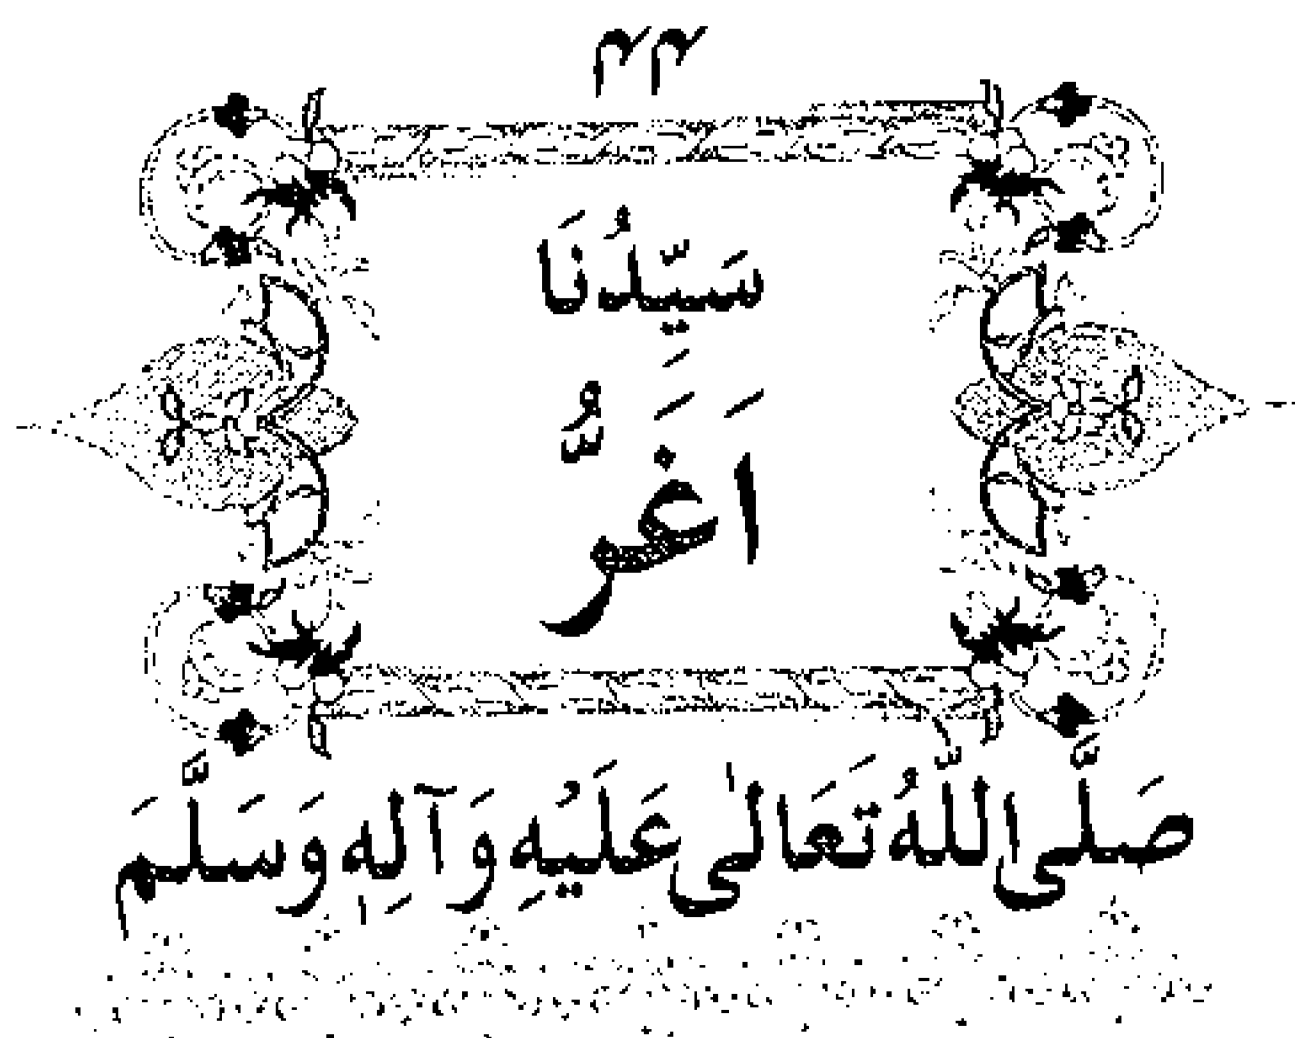 ۴۴
سَيِّدُنَا
اَغَرُّ
صَلَّی اللّٰهُ تَعَالٰی عَلَيْهِ وَآلِهٖ وَسَلَّمَ